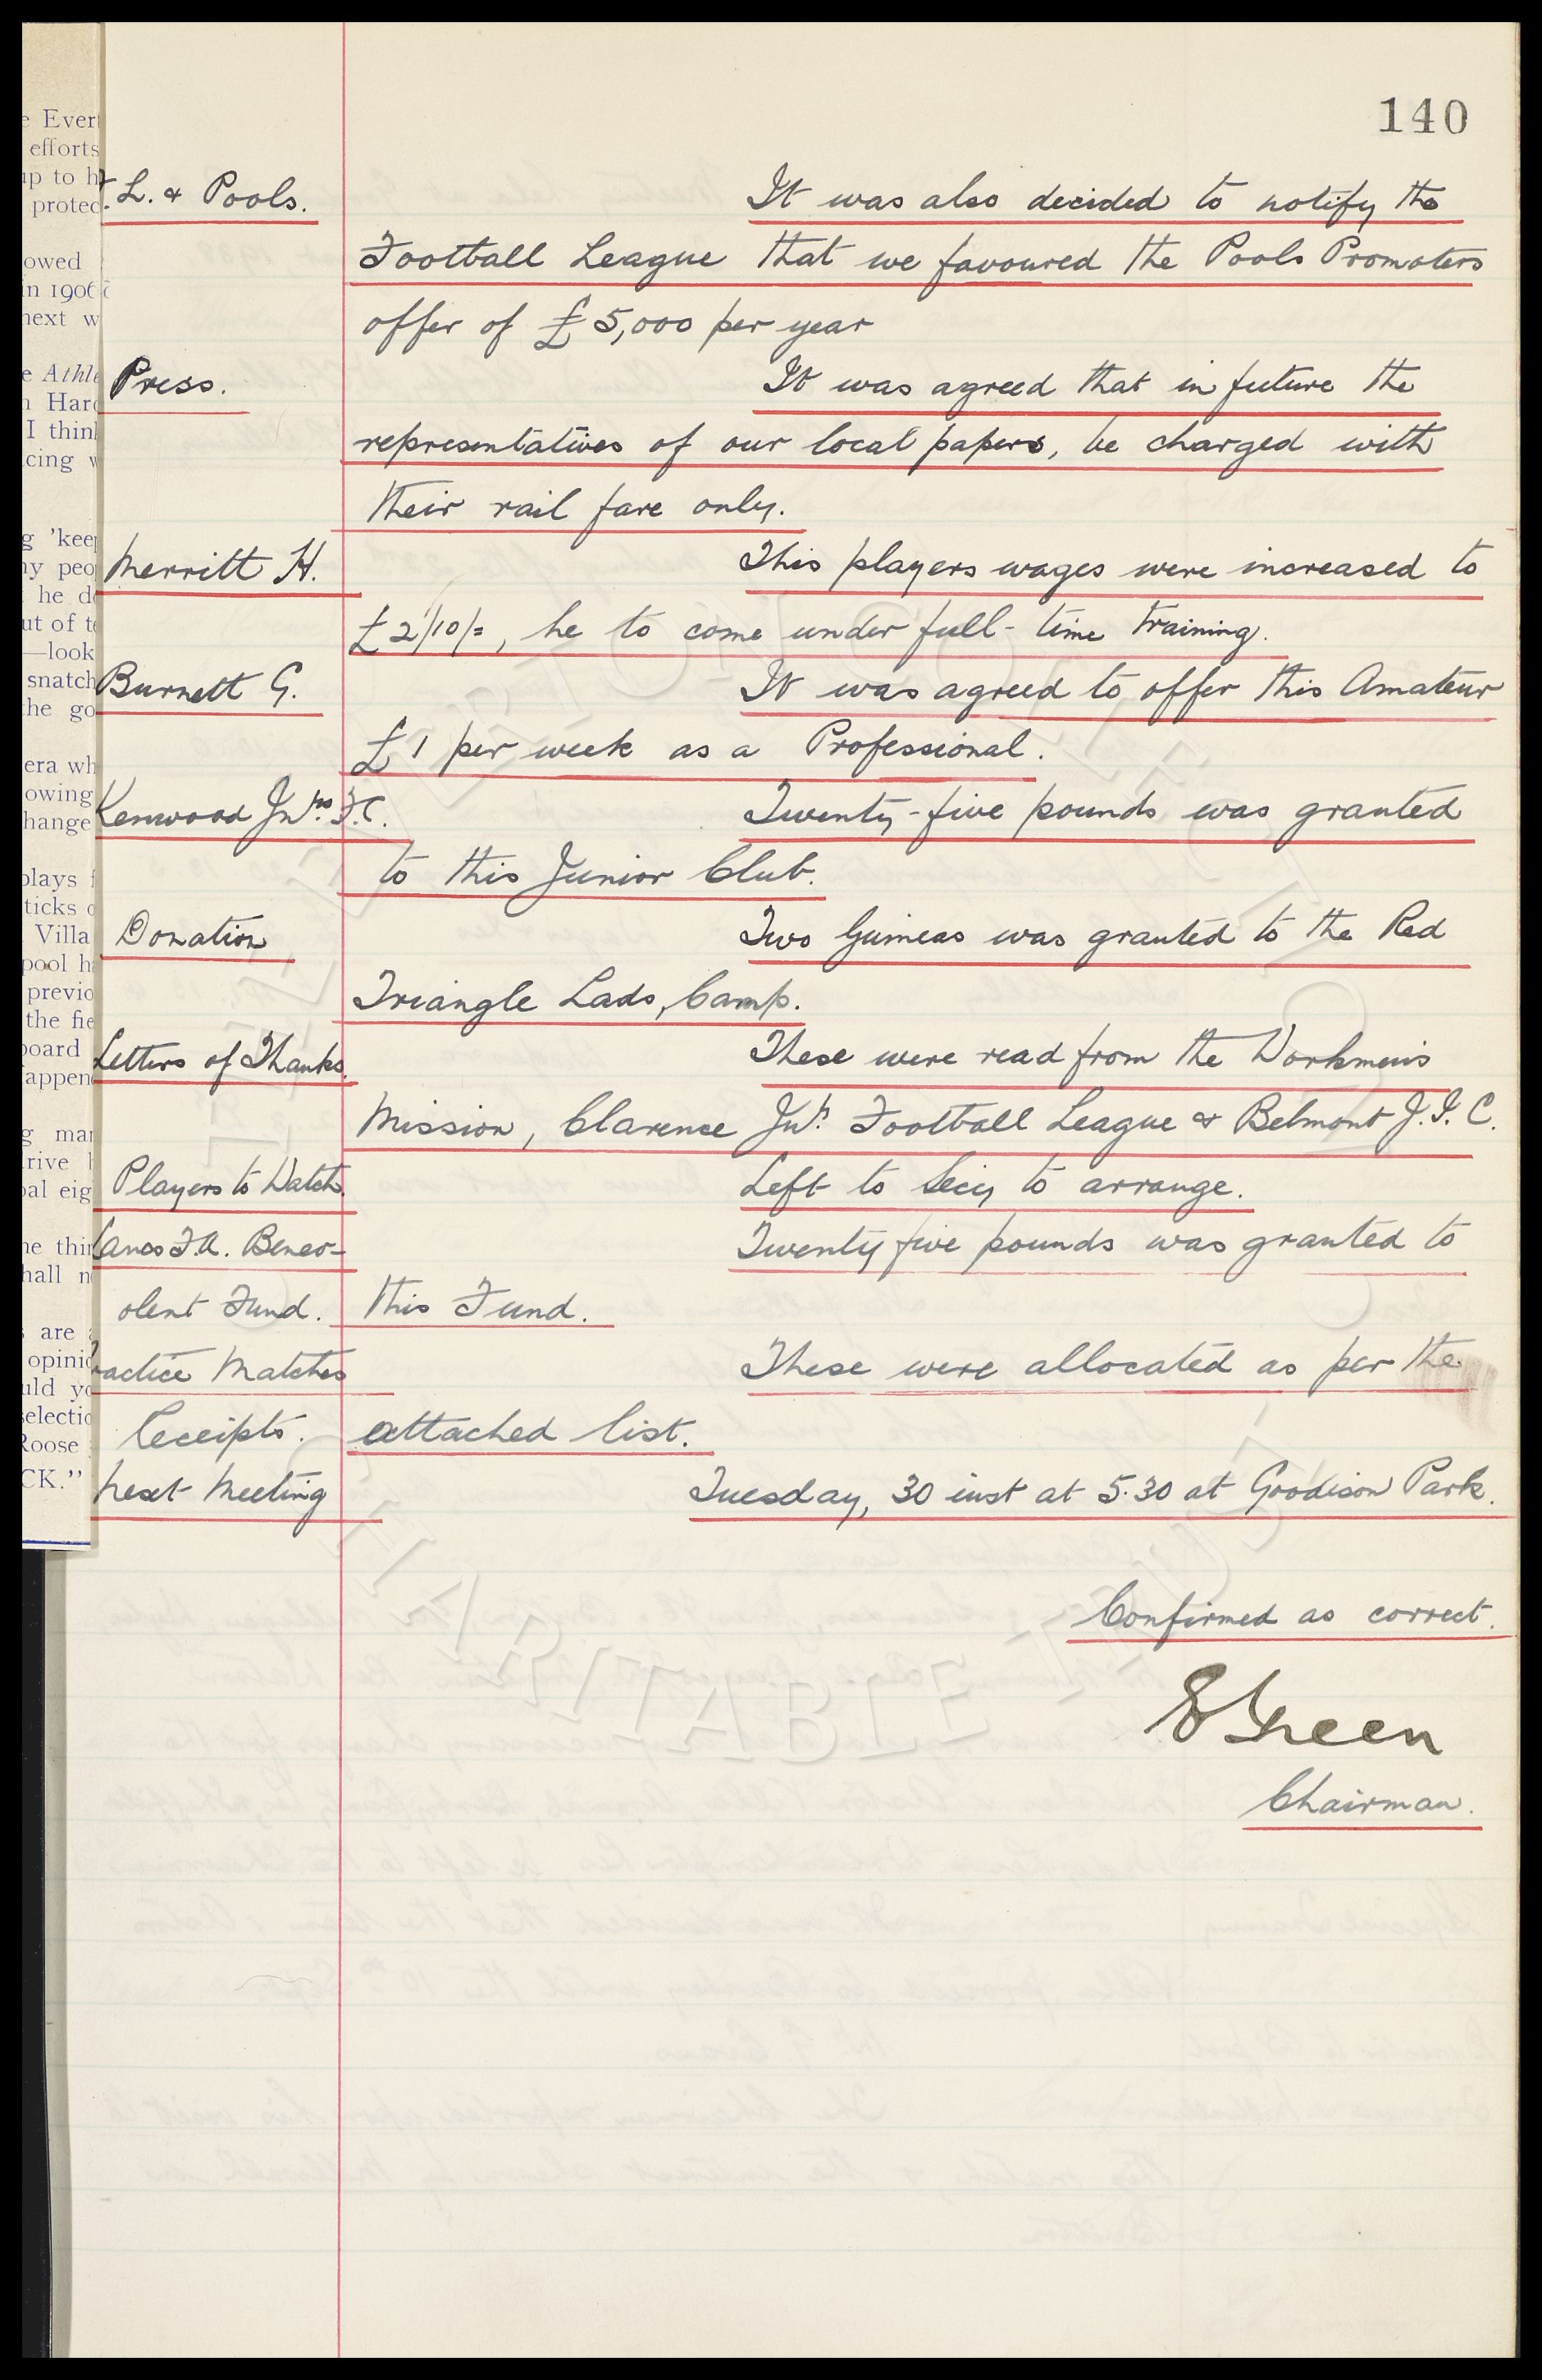 140
e Ever
efforts
up to h
protec
owed
in 1906
next w
e Athle
n Har
I thin
cing w
g 'keep
ny peo
he d
ut of t
—look
snatch
he go
era wh
owing
hange
plays f
ticks o
Villa
pool h
previo
the fie
board
appen
g mar
rive
al eig
he thi
hall n
are
opinio
uld yo
selectio
Roose
CK."
. L. & Pools. It was also decided to notify the
Football League that we favoured the Pools Promoters
offer of £5,000 per year
Press. It was agreed that in future the
representatives of our local papers, be charged with
their rail fare only.
Merritt H. This players wages were increased to
£2/10/=, he to come under full-time training.
Burnett G. It was agreed to offer this Amateur
£1 per week as a Professional.
Kenwood Jnrs. F.C. Twenty-five pounds was granted
to this Junior Club.
Donation Two Guineas was granted to the Red
Triangle Lads, Camp.
Letters of Thanks. These were read from the Workmen's
Mission, Clarence Jnr. Football League & Belmont J.F.C.
Players to Watch. Left to Secy to arrange.
Lancs F.A. Benev- Twenty five pounds was granted to
olent Fund. this Fund.
actice Matches These were allocated as per the
Receipts. attached list.
Next Meeting Tuesday, 30 inst at 5.30 at Goodison Park.
Confirmed as correct.
E Green
Chairman.